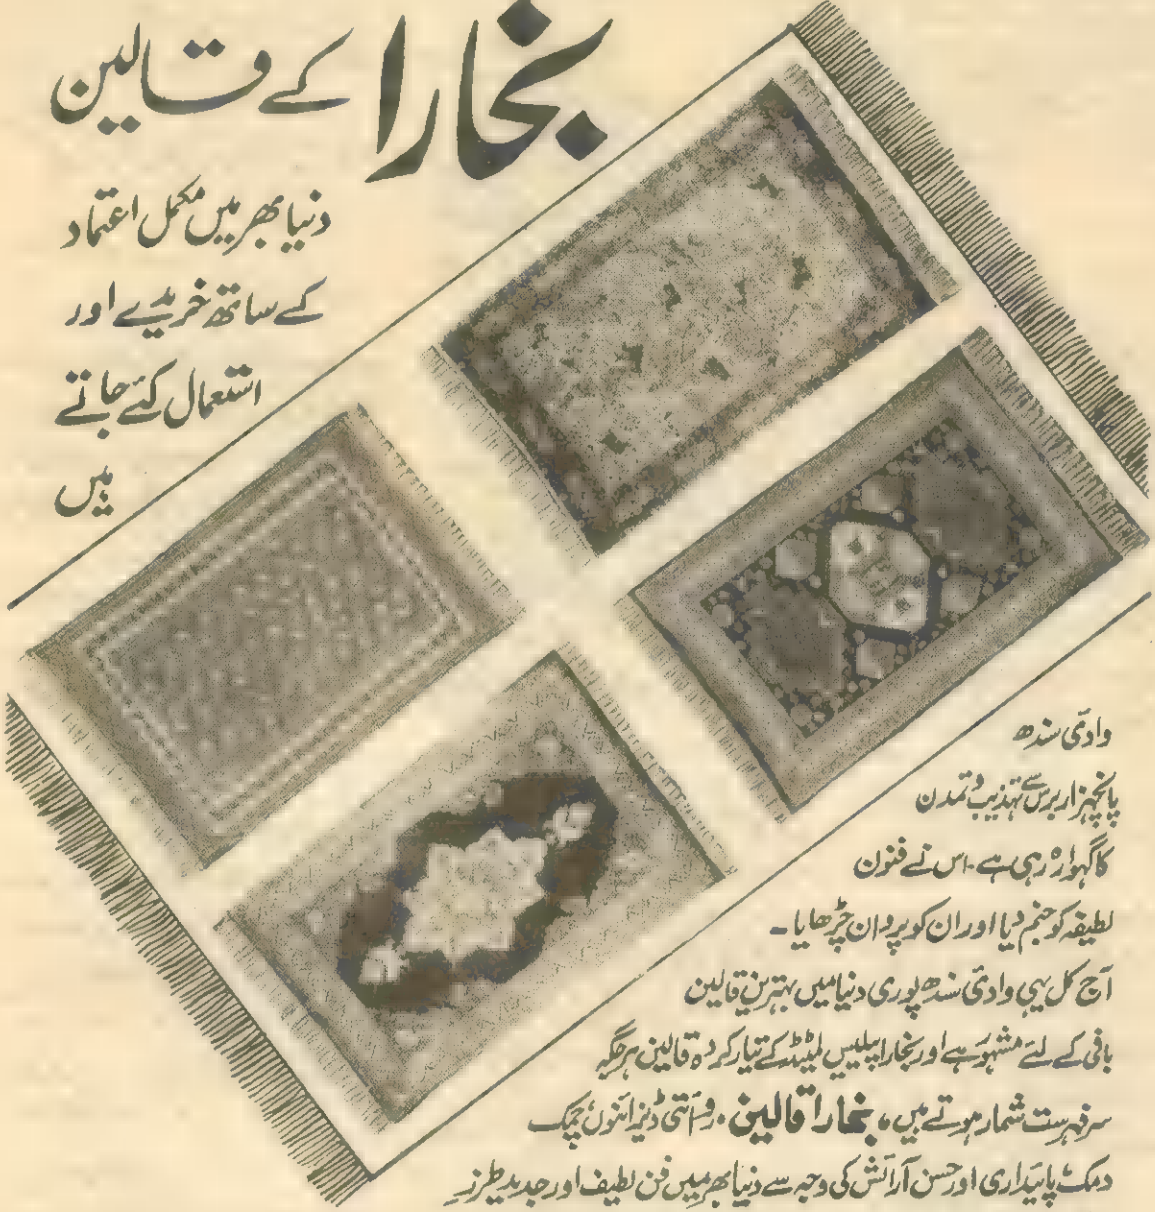 بخارا کے قالین
دنیا بھر میں مکمل اعتماد
کے ساتھ خریدے اور
استعمال کئے جاتے
ہیں
وادئ سندھ
پانچہزار برس سے تہذیب و تمدن
کا گہوارہ رہی ہے۔ اس نے فنون
لطیفہ کو جنم دیا اور ان کو پروان چڑھایا ۔
آج کل یہی وادئ سندھ پوری دنیا میں بہترین قالین
بافی کے لئے مشہور ہے اور بخارا پیلیس لمیٹڈ کے تیار کردہ قالین ہر جگہ
سرفہرست شمار ہوتے ہیں، بخارا قالین، روائتی ڈیزائنوں، چمک
دمک، پائیداری اور حسن آرائش کی وجہ سے دنیا بھر میں فن لطیف اور جدید طرز